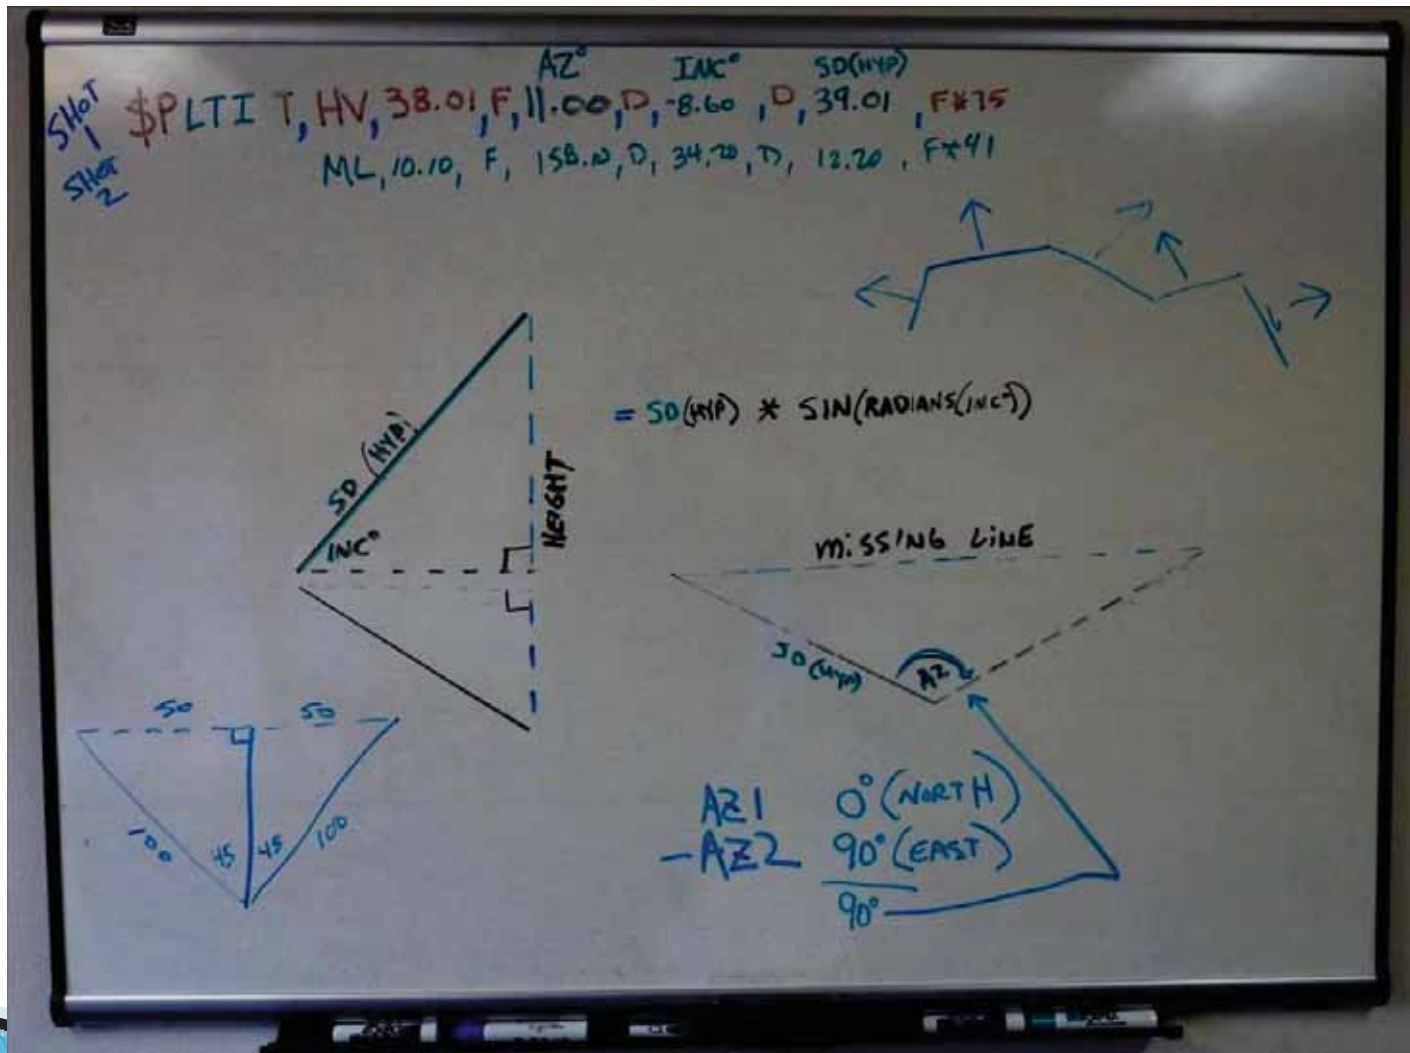 AZ° INC° SD(HYP)
SHOT 1 $PLTI T, HV, 38.01, F, 11.00, D, -8.60, D, 39.01, F*75
SHOT 2 ML, 10.10, F, 158.10, D, 34.20, D, 12.20, F*41
= SD(HYP) * SIN(RADIANS(INC°))
SD (HYP)
HEIGHT
INC°
MISSING LINE
SD(HYP)
AZ
50 50
100 45 45 100
AZ1 0° (NORTH)
-AZ2 90° (EAST)
90°